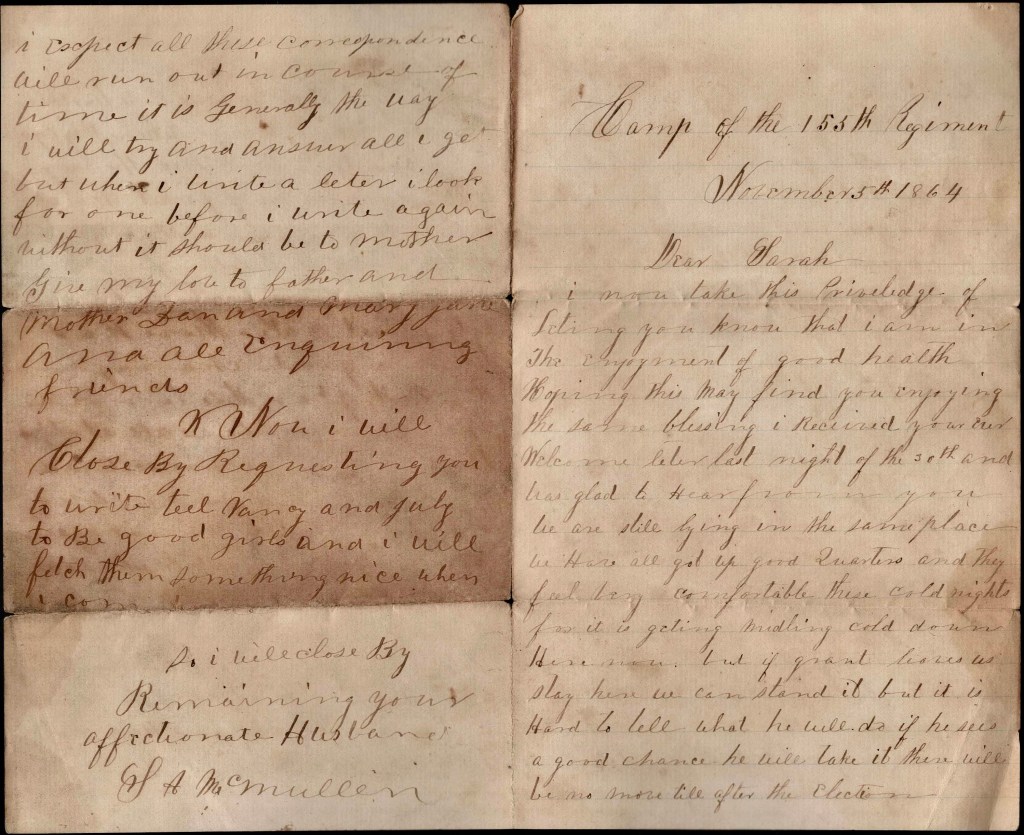 Camp of the 155th Regiment
November 5th 1864
Dear Sarah
i now take this Priveledge of
leting you know that i am in
The enjoyment of good health
Hoping this May find you enjoying
the same blessing i Received your ever
Welcome leter last night of the 30th and
was glad to Hear from you
we are still lying in the same place
we Have all got up good Quarters and they
feel very comfortable these cold nights
for it is geting midling cold down
Here now. but if grant leaves us
stay here we can stand it but it is
Hard to tell what he will do if he sees
a good chance he will take it there will
be no move till after the Election
i expect all these correspondence
will run out in course of
time it is Generally the way
i will try and answer all i get
but when i write a leter i look
for one before i write again
without it should be to mother
Give my love to father and
Mother Dan and Mary jane
And all Enquiring
friends
Now i will
Close By Requesting you
to write tell Nancy and july
to Be good girls and i will
fetch them something nice when
i com
So i will close By
Remaining your
affectionate Husband
S A McMullen